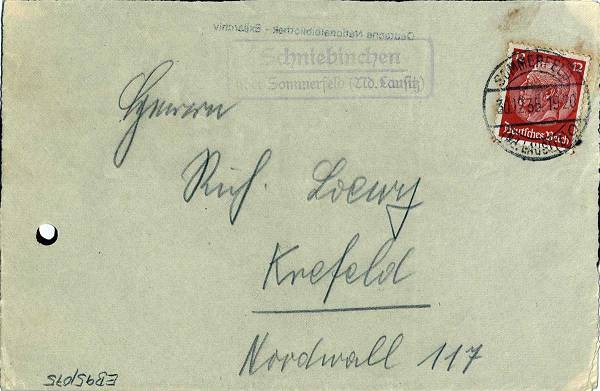 Deutsche Nationalbibliothek - Exilarchiv
Schniebinchen
über Sommerfeld (Nd. Lausitz)
12
SOMMERFELD
30.12.38. 19-20
(Nd. LAUSITZ)
Deutsches Reich
Herrn
Rich. Loewy
Krefeld
Nordwall 117
EB95/075